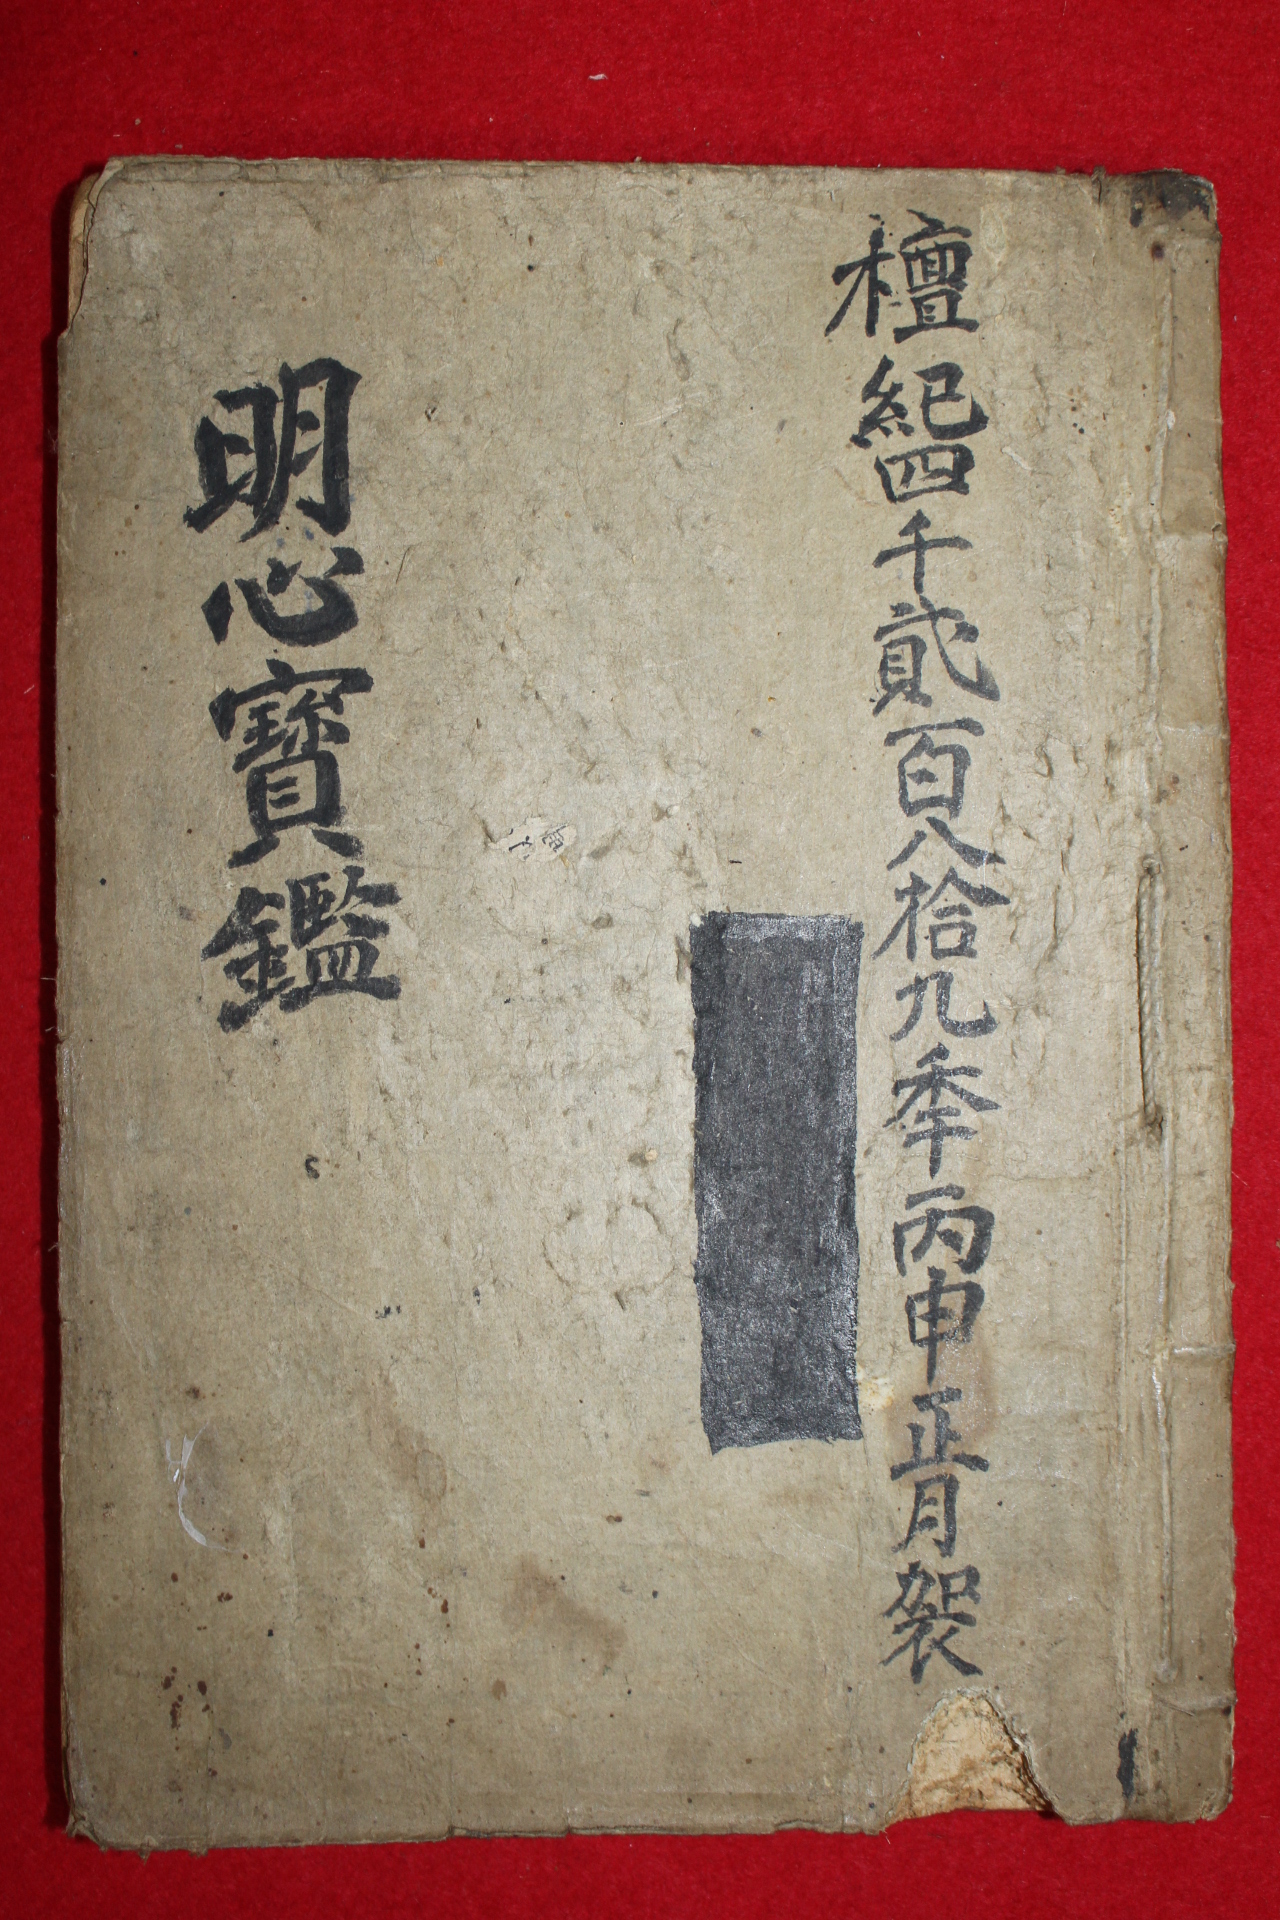 檀紀四千貳百八拾九季丙申正月袈
明心寶鑑